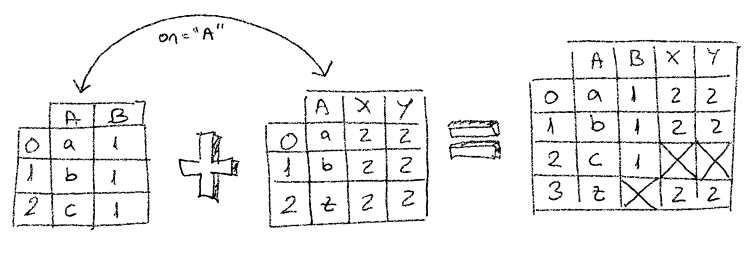 on="A"
A B
0 a 1
1 b 1
2 c 1
+
A X Y
0 a 2 2
1 b 2 2
2 z 2 2
=
A B X Y
0 a 1 2 2
1 b 1 2 2
2 c 1 X X
3 z X 2 2